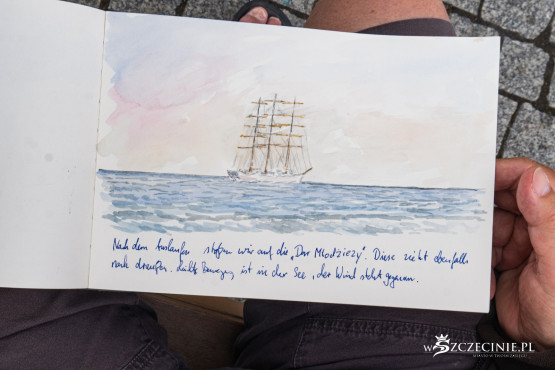 Nach dem Auslaufen stoßen wir auf die „Dar Młodzieży". Diese zieht ebenfalls
nach draußen. Leichte Bewegung ist in der See, der Wind steht gegenan.
wSZCZECINIE.PL